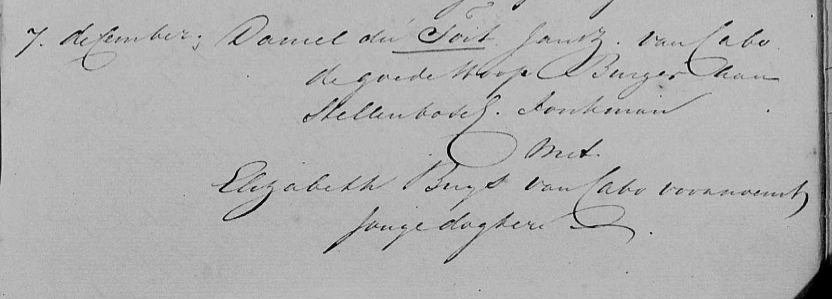 7. december; Daniel du Toit Jansz. van Cabo
de goede Hoop Burger aan
Stellenbosch. Jonkman
Met.
Elizabeth Buys van Cabo voornoemt
Jonge doghter